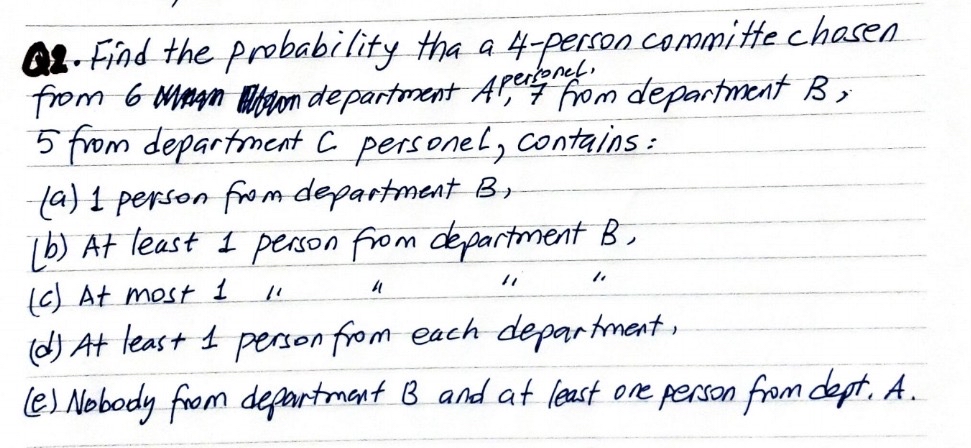 Q2. Find the probability tha a 4-person committe chosen
from 6 department A personel, 7 from department B,
5 from department C personel, contains:
(a) 1 person from department B,
(b) At least 1 person from department B,
(c) At most 1 " " " "
(d) At least 1 person from each department,
(e) Nobody from department B and at least one person from dept. A.